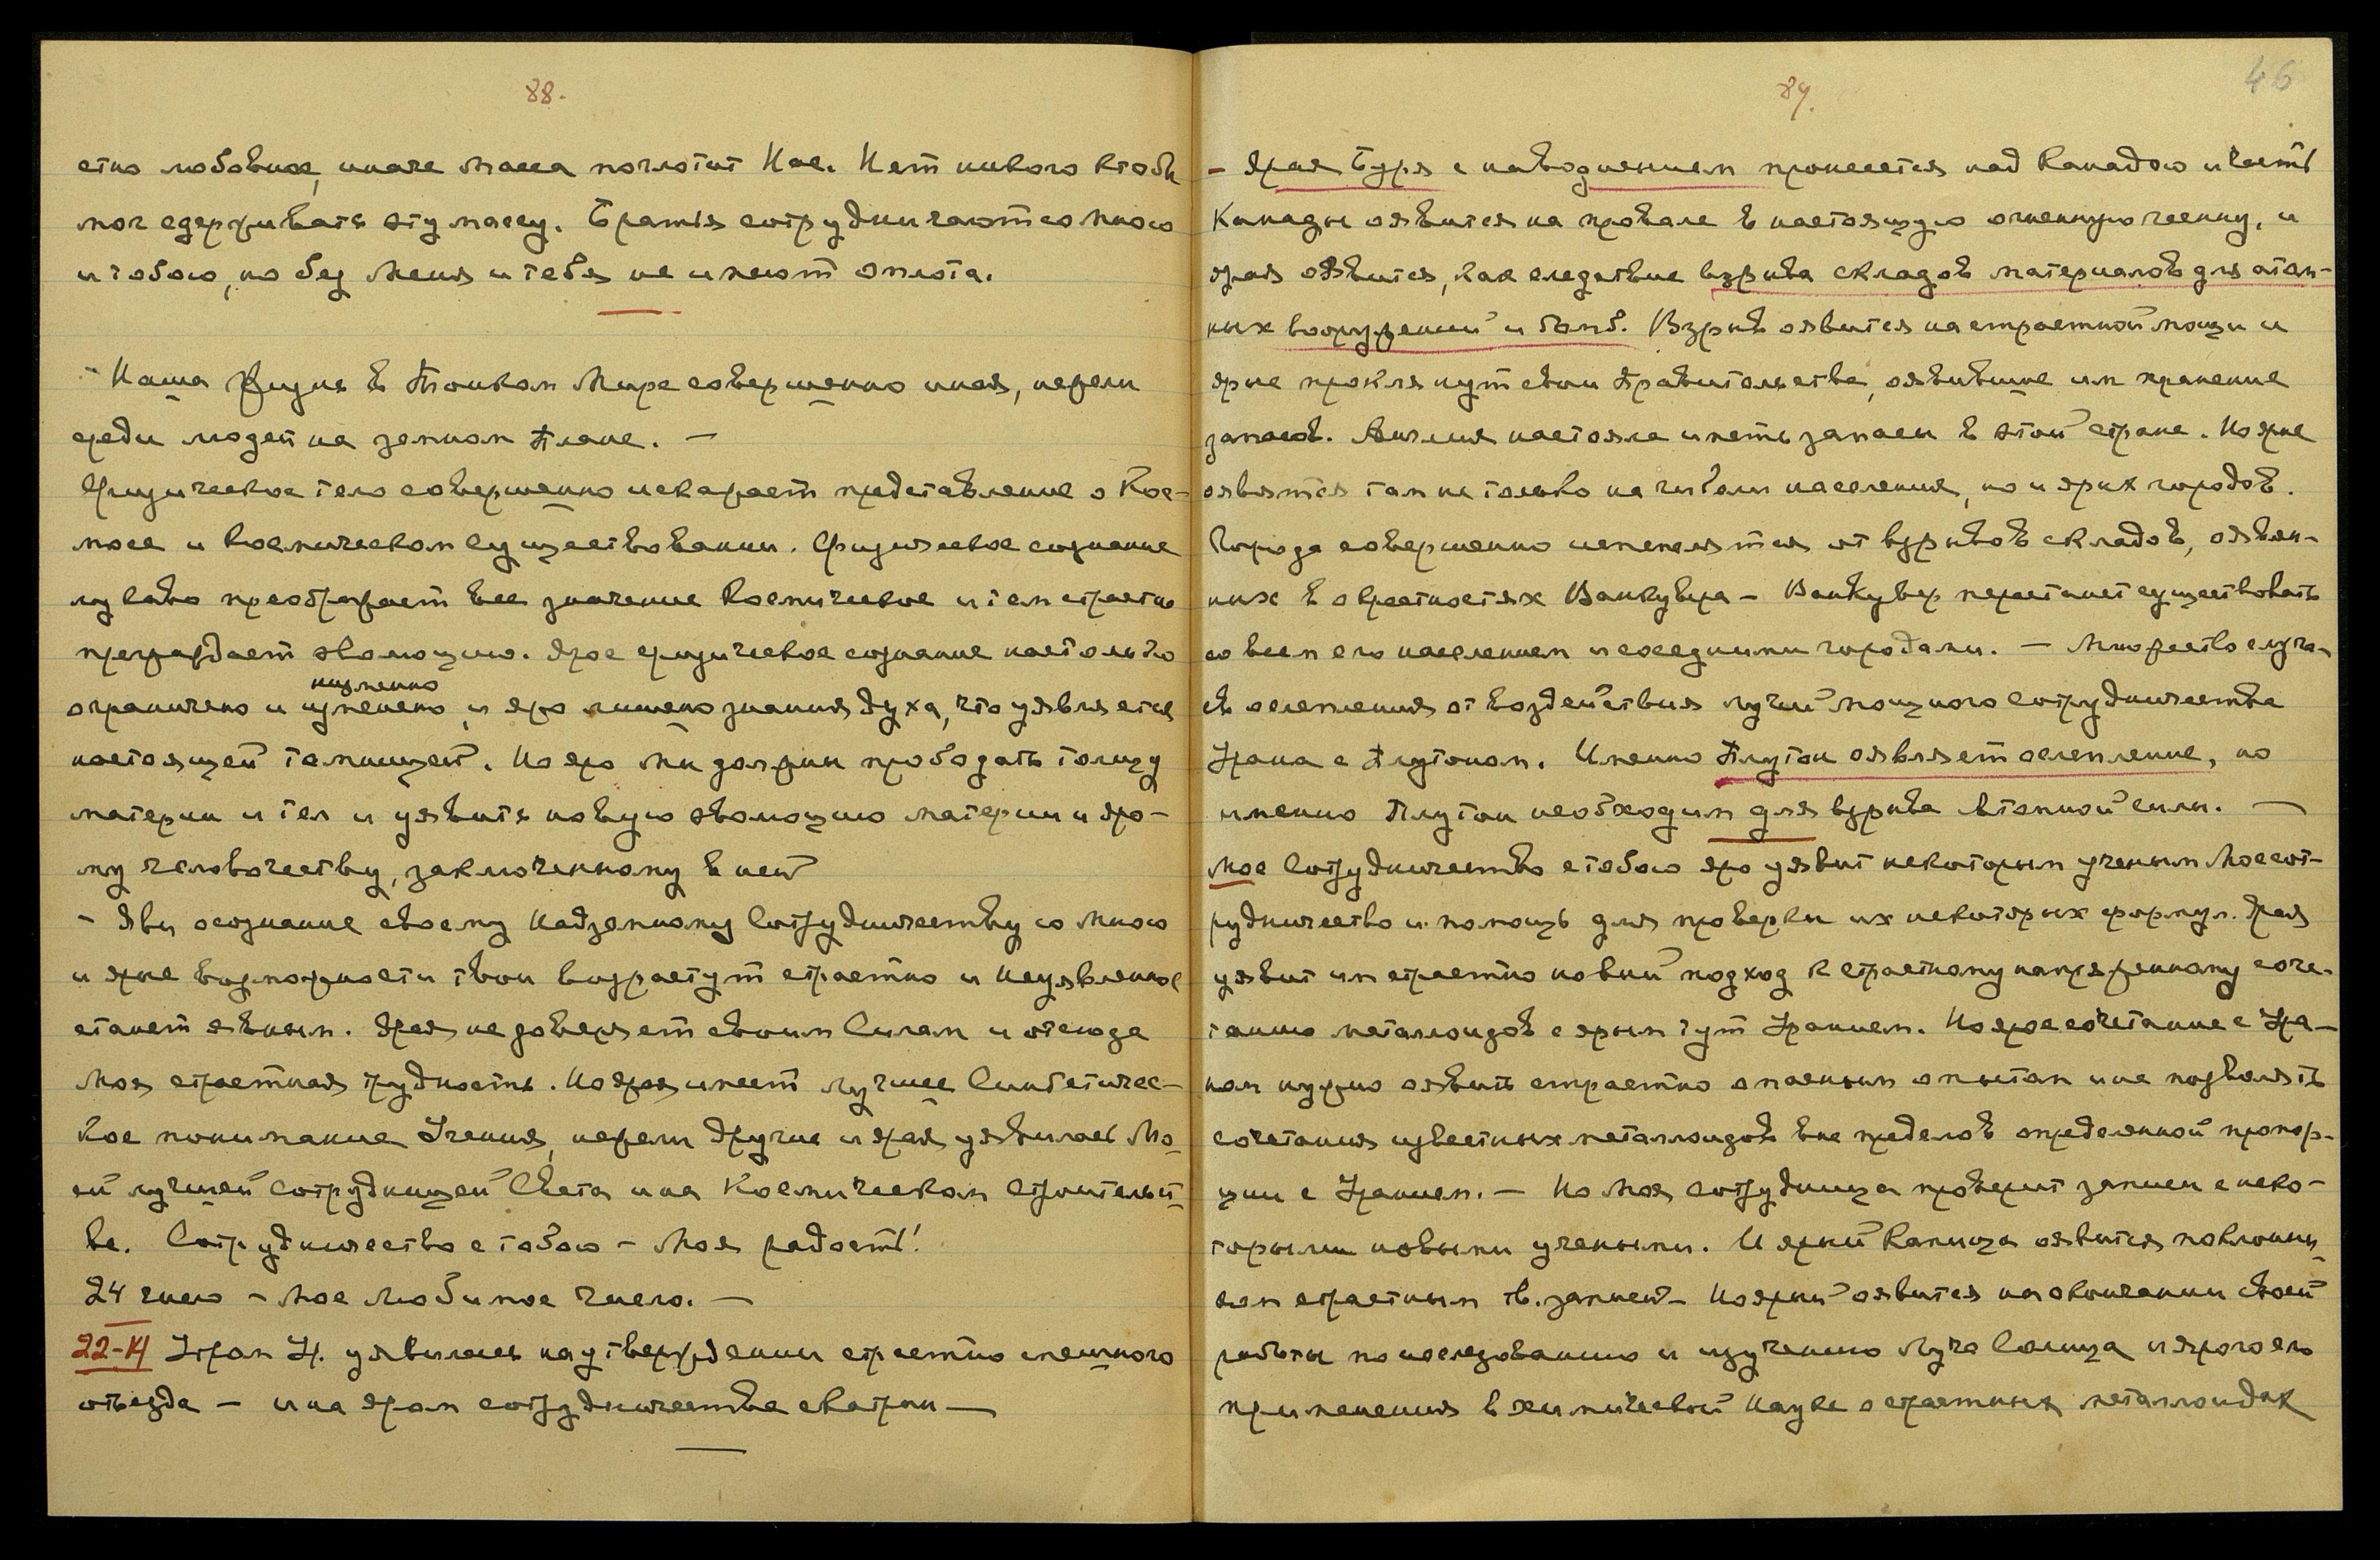 88.
стно любовное, иначе Масса поглотит Нас. Нет никого кто бы
мог сдерживать эту массу. Братья сотрудничают со Мною
и тобою, но без Меня и тебя не имеют оплота.
Наша Жизнь в Тонком Мире совершенно иная, нежели
среди людей на земном плане. —
Физическое тело совершенно искажает представление о Кос-
мосе и Космическом Существовании. Физическое сознание
лукаво преображает все значение Космическое и тем страстно
преграждает эволюцию. Ярое физическое сознание настолько
низменно
ограничено и изменено, и яро лишено знания духа, что уявляется
настоящей темницей. Но яро Мы должны прободать толщу
материи и тел и уявить новую эволюцию материи и яро-
му человечеству, заключенному в ней
- Яви осознание своему Надземному Сотрудничеству со Мною
и ярые возможности твои возрастут страстно и Неуявленное
станет явным. Ярая не доверяет своим Силам и отсюда
Моя страстная трудность. Но ярая имеет лучшее Синтетичес-
кое понимание Учения, нежели другие и ярая уявилась Мо-
ей лучшей сотрудницей Света и на Космическом Строительст-
ве. Сотрудничество с тобою – Моя радость!
24 число – Мое Любимое Число. —
22-XI Утром У. уявилась на утверждении страстно спешного
отъезда – и на яром сотрудничестве сестры —
89.
46
- Ярая Буря с наводнением пронесется над Канадою и часть
Канады оявится на провале в настоящую огненную геенну, и
ярая оявится, как следствие взрыва складов материалов для атом-
ных вооружений и бомб. Взрыв оявится на страстной мощи и
ярые проклянут свои Правительства, оявившие им хранение
запасов. Англия настояла иметь запасы в этой стране. Но ярые
оявятся там не только на гибели населения, но и ярых городов.
Города совершенно испепелятся от взрывов складов, оявлен-
ных в окрестностях Ванкувера – Ванкувер перестанет существовать
со всем его населением и соседними городами. — Множество случа-
ев ослепления от воздействия лучей мощного Сотрудничества
Урана с Плутоном. Именно Плутон оявляет ослепление, но
именно Плутон необходим для взрыва атомной силы. —
Мое Сотрудничество с тобою яро уявит некоторым ученым Мое сот-
рудничество и помощь для проверки их некоторых формул. Ярая
уявит им страстно новый подход к страстному напряженному соче-
танию металлоидов с ярым тут Уранием. Но ярое сочетание с Ура-
ном нужно оявить страстно опасным опытам и не позволять
сочетания известных металлоидов вне пределов определенной пропор-
ции с Уранием. — Но Моя сотрудница проверит записи с неко-
торыми новыми учеными. И ярый Капица оявится поклонни-
ком страстным тв. записей – Но ярый оявится на окончании своей
работы по исследованию и изучению Луча Солнца и ярого его
применения в химической Науке о страстных металлоидах